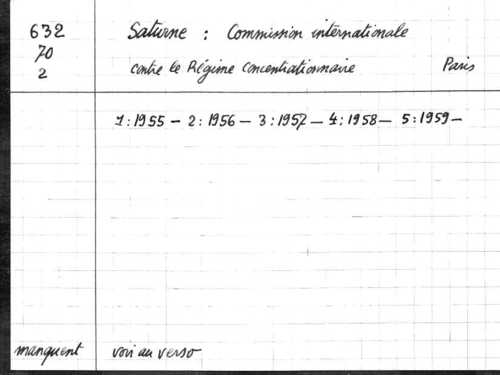 632
70
2
Saturne : Commission internationale
contre le Régime Concentrationnaire Paris
1:1955 – 2:1956 – 3:1957 – 4:1958 – 5:1959 –
manquent voir au verso